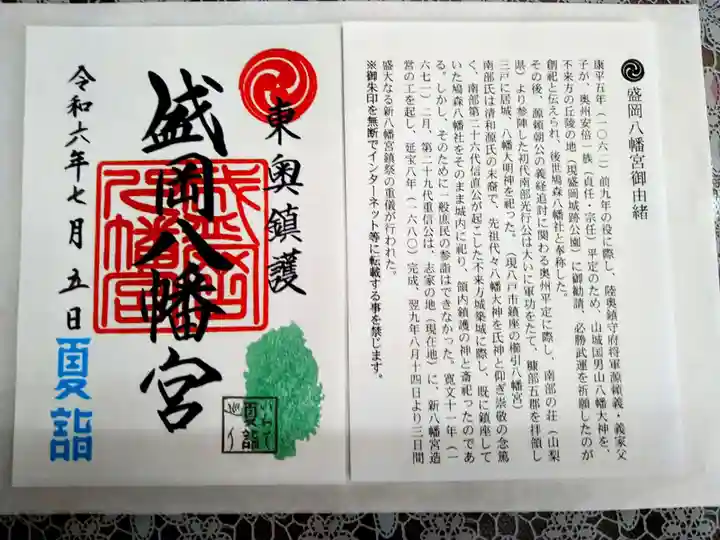 東奥鎮護
盛岡八幡宮
令和六年七月五日
夏詣
夏詣
盛岡八幡宮御由緒
康平五年（一〇六二）前九年の役に際し、陸奥鎮守府将軍源頼義・義家父
子が、奥州安倍一族（貞任・宗任）平定のため、山城国男山八幡大神を、
不来方の丘陵の地（現盛岡城跡公園）に御勧請、必勝武運を祈願したのが
創祀と伝えられ、後世鳩森八幡社と奉称した。
その後、源頼朝公の義経追討に関わる奥州平定に際し、南部の荘（山梨
県）より参陣した初代南部光行公は大いに軍功をたて、糠部五郡を拝領し
三戸に居城、八幡大明神を祀った。（現八戸市鎮座の櫛引八幡宮）
南部氏は清和源氏の末裔で、先祖代々八幡大神を氏神と仰ぎ崇敬の念篤
く、南部第二十六代信直公が起こした不来方城築城に際し、既に鎮座して
いた鳩森八幡社をそのまま城内に祀り、領内鎮護の神と斎祀ったのであ
る。しかし、そのために一般庶民の参詣はできなかった。寛文十一年（一
六七一）二月、第二十九代重信公は、志家の地（現在地）に、新八幡宮造
営の工を起し、延宝八年（一六八〇）完成、翌九年八月十四日より三日間
盛大なる新八幡宮鎮祭の重儀が行われた。
※御朱印を無断でインターネット等に転載する事を禁じます。